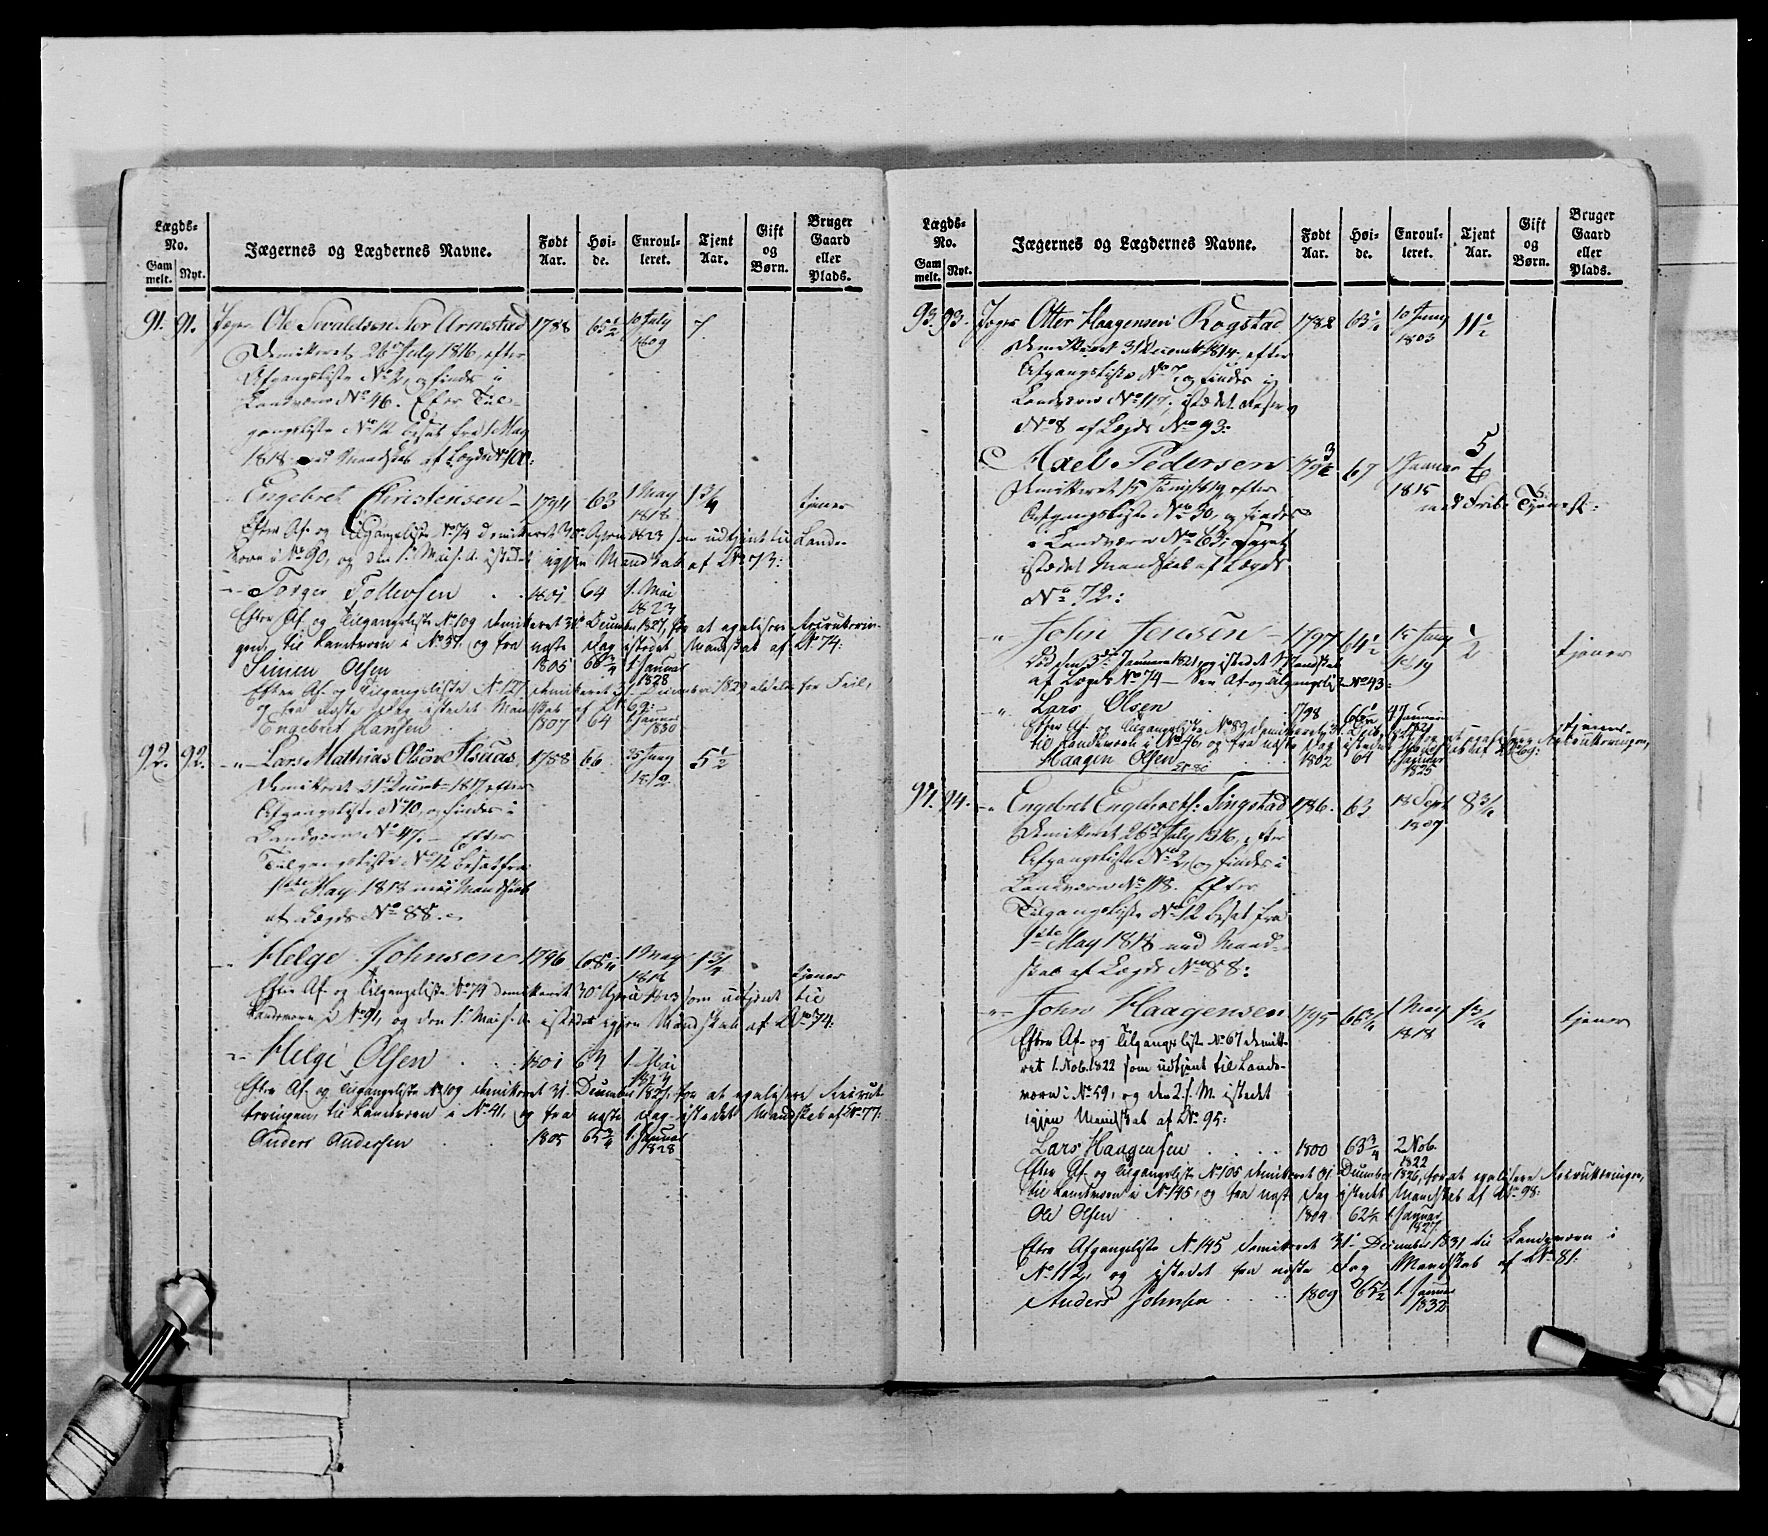 Lægds-No. Jægernes og Lægdernes Navne. Født Aar. Høi-de. Enroul-leret. Tjent Aar. Gift og Børn. Bruger Gaard eller Plads.
Gam melt. Nyt.
91. 91. Jæger Ole Sivaldsen Tor Arnestad 1788 65½ 10 July 1809 7
Demitteret 26de July 1816, efter
Afgangsliste No 2, og findes i
Landværn No 46. Efter Til-
gangsliste No 12 besat fra 1 May
1818 med Mandskab af Lægds No 100:
Engebret Christensen 1794 63 1 May 1818 1¾ tjener
Efter Af- og Tilgangsliste No 74 demitteret 30 April 1823 som udtjent til Land-
værn i No 90, og den 1. Mai s. A. istedet igjen Mandskab af No 73:
Torger Tollevsen 1801 64 1. Mai 1823
Efter Af- og Tilgangsliste No 109 demitteret 31 December 1827, for at egalisere Recrutterin-
gen, til Landværn i No 37. og fra næste Dag istedet Mandskab af No 74:
Simen Olsen 1805 66¾ 1. Januar 1828
Efter Af- og Tilgangsliste No 127 demitteret 31 December 1829 for Feil,
og fra næste Dag istedet Mandskab af No 69:
Engebret Hansen 1807 64 1 Januar 1830
92. 92. Lars Mathias Olsen 1788 66 25 Juny 1812 5½
Demitteret 31 Decemb 1817, efter
Afgangsliste No 10, og findes i
Landværn No 47. Efter
Tilgangsliste No 12 besat fra
1ste May 1818 med Mandskab
af Lægds No 88.
Helge Johnsen 1796 68¾ 1 May 1818 1¾ tjener
Efter Af- og Tilgangsliste No 74 demitteret 30 April 1823 som udtjent til
Landværn i No 91, og den 1. Mai s. A. istedet igjen Mandskab af No 74:
Helge Olsen 1801 1. Mai 1823
Efter Af- og Tilgangsliste No 109 demitteret 31. December 1827, for at egalisere Recrut-
teringen, til Landværn i No 41. og fra næste Dag istedet Mandskab af No 77:
Anders Andersen 1805 65¾ 1. Januar 1828
Lægds-No. Jægernes og Lægdernes Navne. Født Aar. Høi-de. Enroul-leret. Tjent Aar. Gift og Børn. Bruger Gaard eller Plads.
Gam melt. Nyt.
93. 93. Jæger Otter Haagensen Rogstad 1782 63½ 10 Juny 1803 11½
Demitteret 31 Decemb 1814, efter
Afgangsliste No 7, og findes i
Landværn No 117, istædet
No 8 af Lægds No 93:
Axel Pedersen 67 1 Januar 1815
Demitteret 15 Juny 1819 efter
Afgangsliste No 30, og findes
i Landværn No 63:
istædet Mandskab af Lægds
No 72:
John Jensen 1797 64½ 15 Juny 1819 ½ tjener
Død den 3de Januar 1821, og istedet Mandskab
af Lægds No 74 — See Af- og Tilgangsliste No 43:
Lars Olsen 1798 Januar 1821 tjener
Efter Af- og Tilgangsliste No 89 demitteret 31 Decb. for at egalisere Recrutteringen,
til Landværn i No 46, og fra næste Dag istedet Mandskab af No 69:
Haagen Olsen 1802 64 1. Januar 1825
94. 94. Engebret Engebrets: Tingstad 1786. 63 18 Sept 1807 8¾
Demitteret 26de July 1816, efter
Afgangsliste No 2, og findes i
Landværn No 118. Efter
Tilgangsliste No 12 besat fra
1ste May 1818 med Mand-
skab af Lægds No 88:
John Haagensen 1795 66¾ 1 May 1818 1¾ tjener
Efter Af- og Tilgangsliste No 67 demitte-
ret 1. Nob. 1822 som udtjent til Land-
værn i No 59, og den 2. s. M. istedet
igjen Mandskab af No 95:
Lars Haagensen 1800 63¾ 2 Nob. 1822
Efter Af- og Tilgangsliste No 105 demitteret 31 December 1826, for at egalisere Recrutteringen,
til Landværn i No 145, og fra næste Dag istedet Mandskab af No 98:
Ole Olsen 1804 62½ 1. Januar 1827
Efter Afgangsliste No 145 demitteret 31 December 1831 til Landeværn i
No 112, og istedet fra næste Dag Mandskab af No 81:
Anders Johnsen 1809 65½ 1. Januar 1832